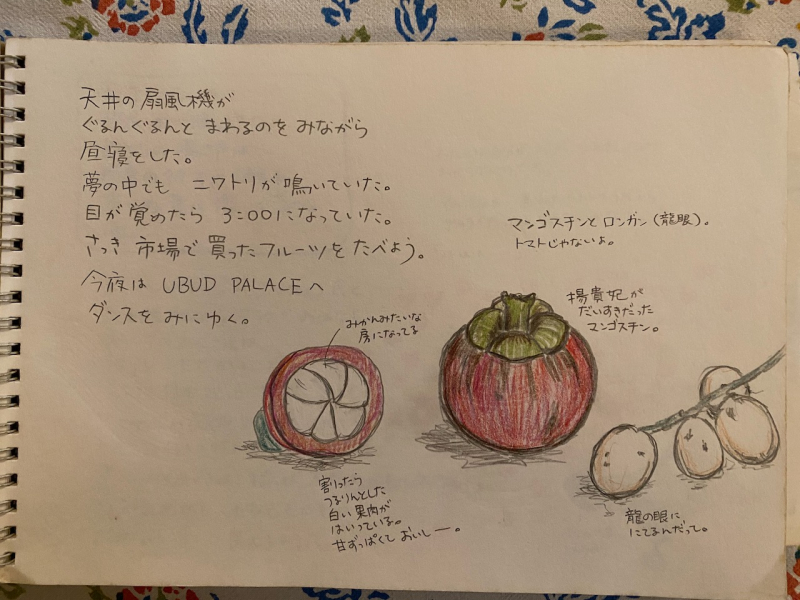 天井の扇風機が
ぐるんぐるんと まわるのを みながら
昼寝をした。
夢の中でも ニワトリが 鳴いていた。
目が覚めたら 3:00になっていた。
さっき 市場で 買ったフルーツを たべよう。
今夜は UBUD PALACEへ
ダンスを みにゆく。
マンゴスチンと ロンガン(龍眼)。
トマトじゃないよ。
楊貴妃が
だいすきだった
マンゴスチン。
みかんみたいな
房になってる
割ったら
つるりんとした
白い果肉が
はいっている。
甘ずっぱくて おいしー。
龍の眼に
にてるんだって。